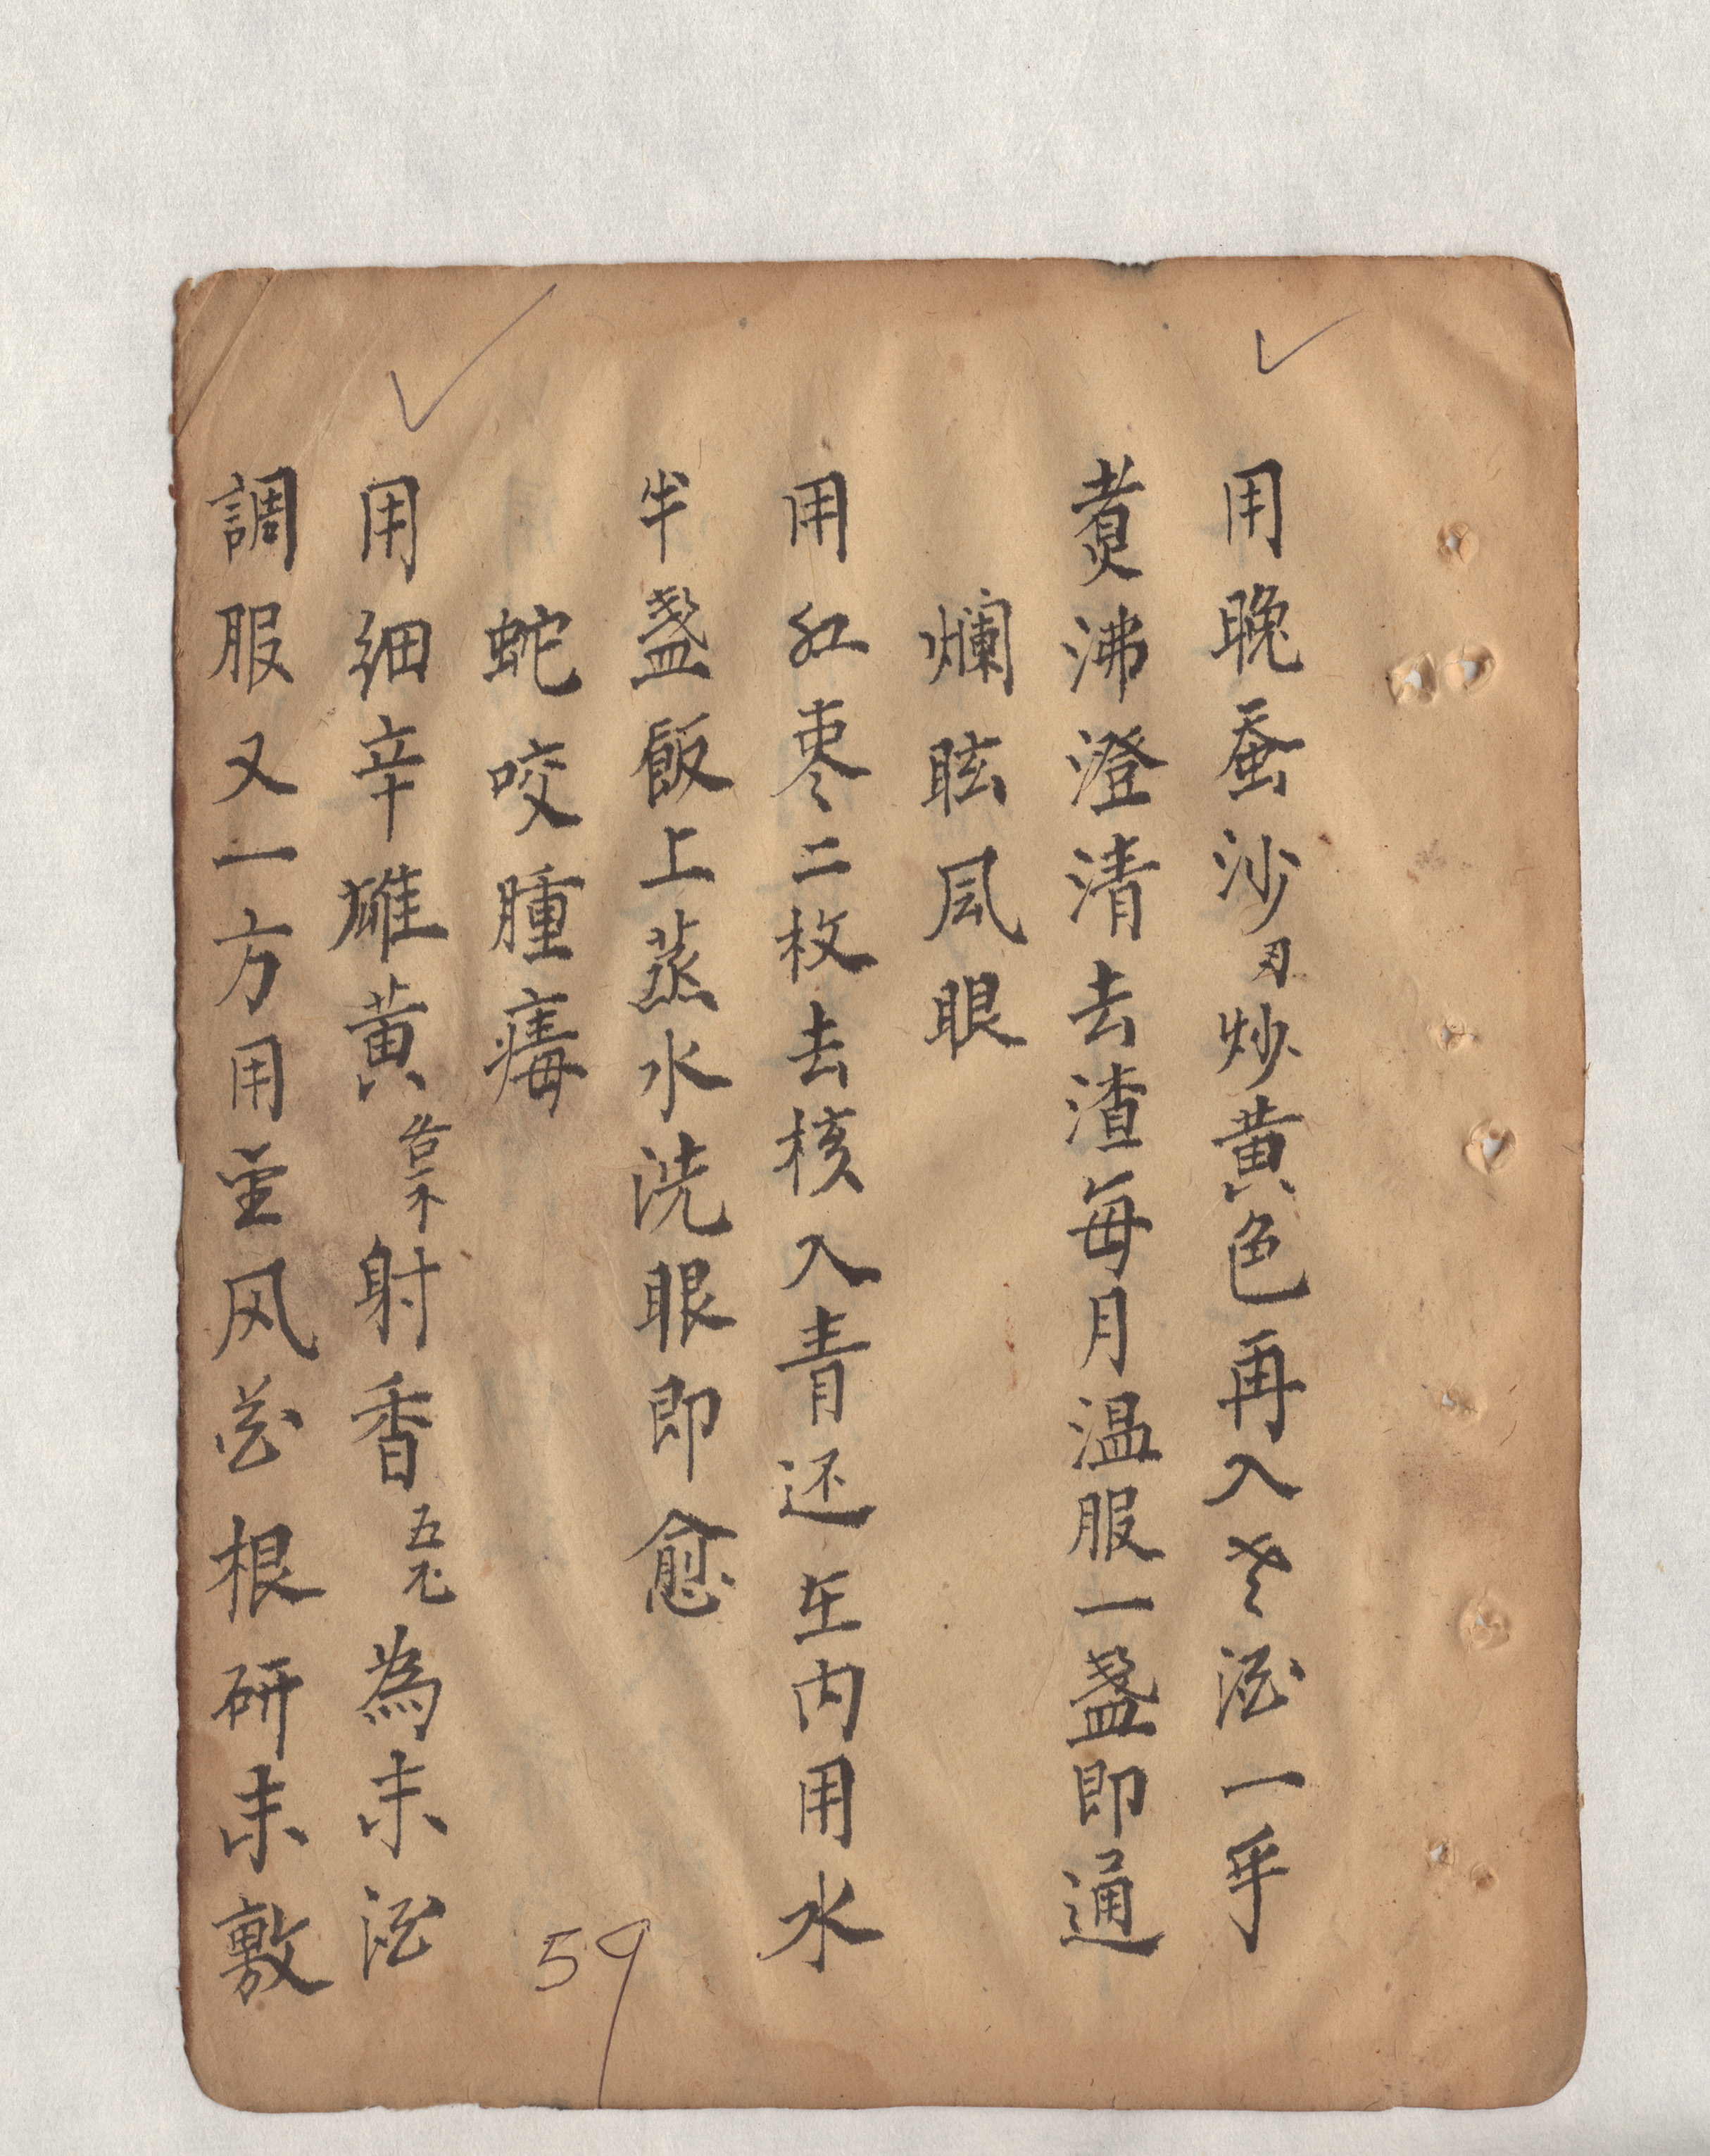 用晚蚕沙炒黄色再入酒一乎
煑沸澄清去渣每月温服一盏即通
爛眩风眼
用红枣二枚去核入青还在内用水
半盏飯上蒸水洗眼即愈
蛇咬腫痗
用细辛雄黄各不射香五不為末酒
調服又一方用风根研末敷
59